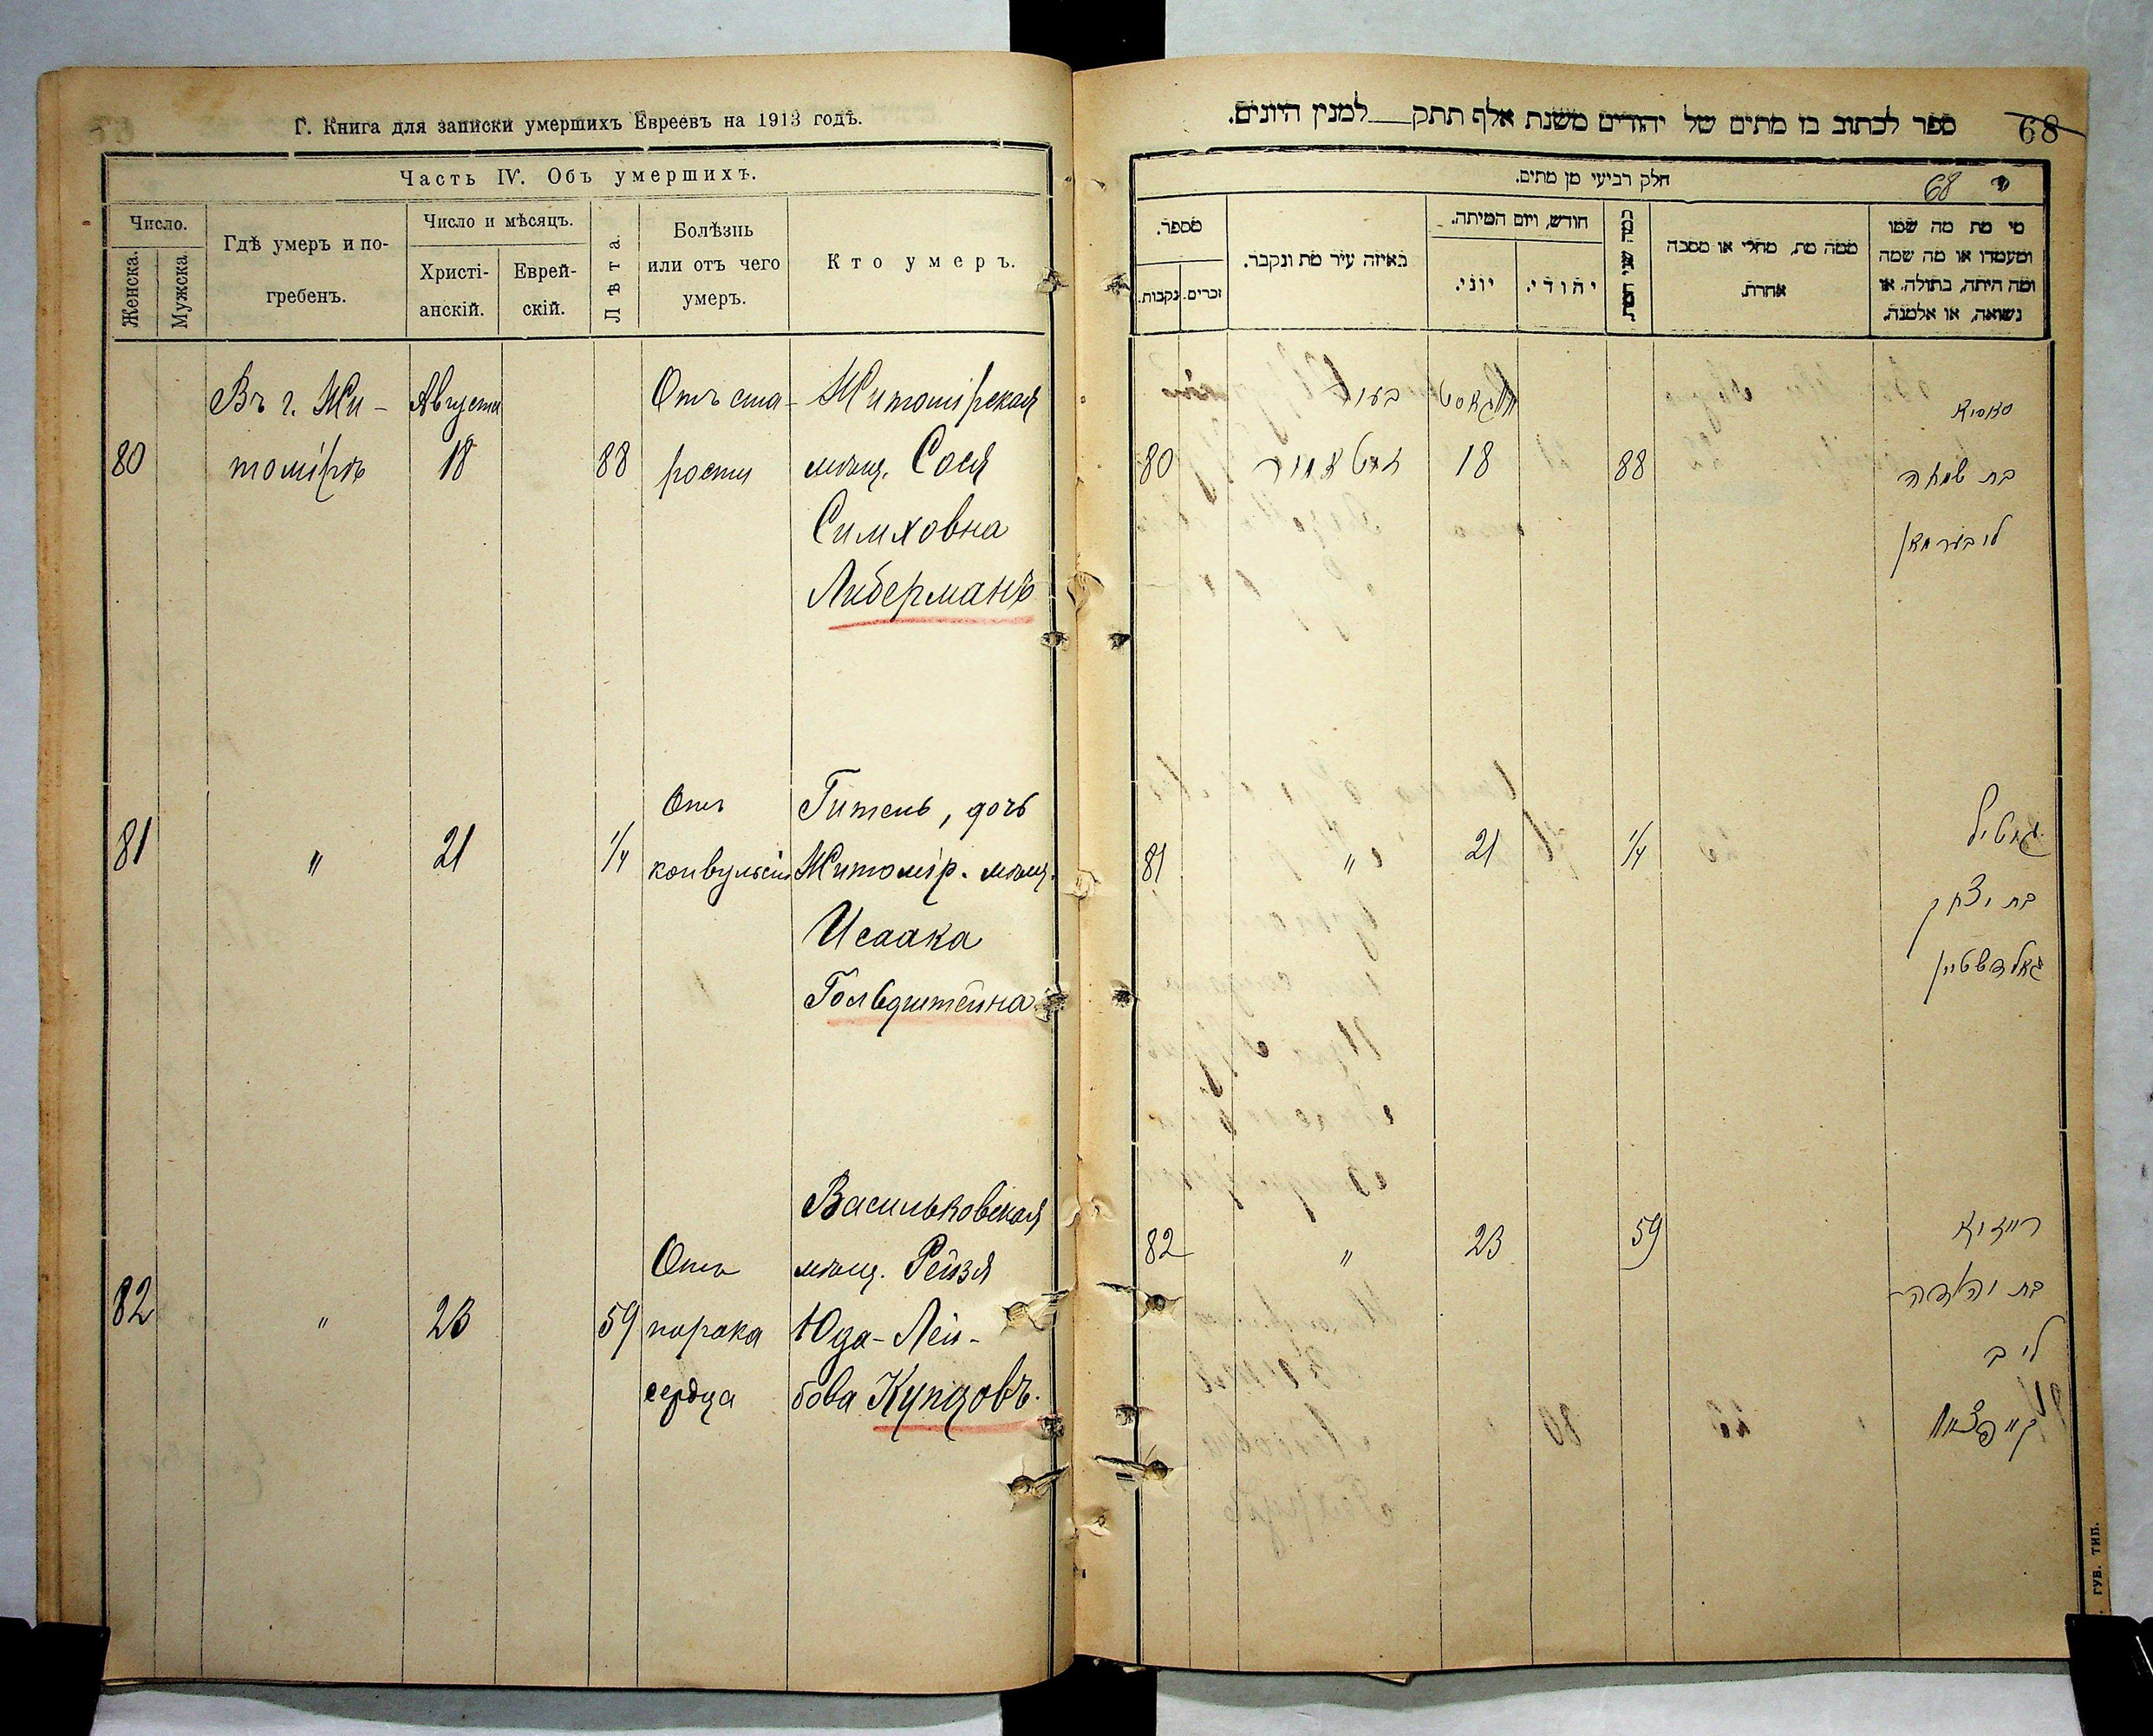 Г. Книга для записки умершихъ Евреевъ на 1913 годъ.
Часть IV. Объ умершихъ.
Число.
Женска.
Мужска.
Гдѣ умеръ и по-
гребенъ.
Число и мѣсяцъ.
Христі-
анскій.
Еврей-
скій.
Лѣта.
Болѣзнь
или отъ чего
умеръ.
Кто умеръ.
80
Въ г. Жи-
томірѣ
Августа
18
88
Отъ ста-
рости
Житомірская
мѣщ. Сося
Симховна
Либерманъ
81
"
21
1/4
Отъ
конвульсіи
Гитель, дочь
Житомір. мѣщ.
Исаака
Гольдштейна
82
"
23
59
Отъ
порока
сердца
Васильковская
мѣщ. Рейзя
Юда-Лей-
бова Купцовъ.
ספר לכתוב בו מתים של יהודים משנת אלף תתק למנין היונים.
68
חלק רביעי מן מתים.
68
מספר.
נקבות.
זכרים.
באיזה עיר מת ונקבר.
חודש, ויום המיתה.
יוני.
יהודי.
ממה מת, מחלי או מסבה
אחרת.
מי מת מה שמו
ומעמדו או מה שמה
ומה היתה, בתולה, או
נשואה, או אלמנה.
80
בעיר
זיטאמיר
אוגוסט
18
88
סאסיא
בת שמחה
ליבערמאן
81
"
21
1/4
גיטיל
בת יצחק
גאלדשטיין
82
"
23
59
רייזיא
בת יהודה
ליב
קופצאוו
ГУБ. ТИП.